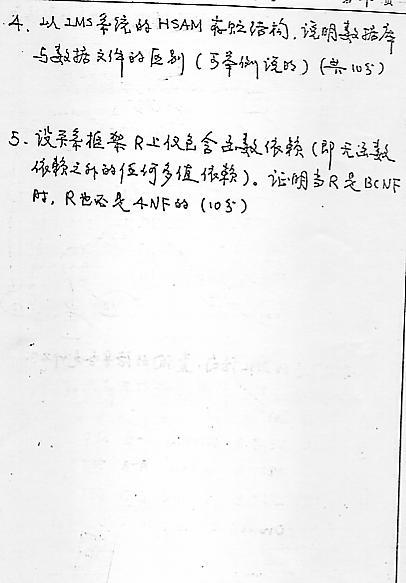 4. 以IMS系统的HSAM存贮结构,说明数据库
与数据文件的区别(可举例说明)(共10分)
5. 设关系框架R上仅包含函数依赖(即无函数
依赖之外的任何多值依赖)。证明当R是BCNF
时,R也必是4NF的(10分)